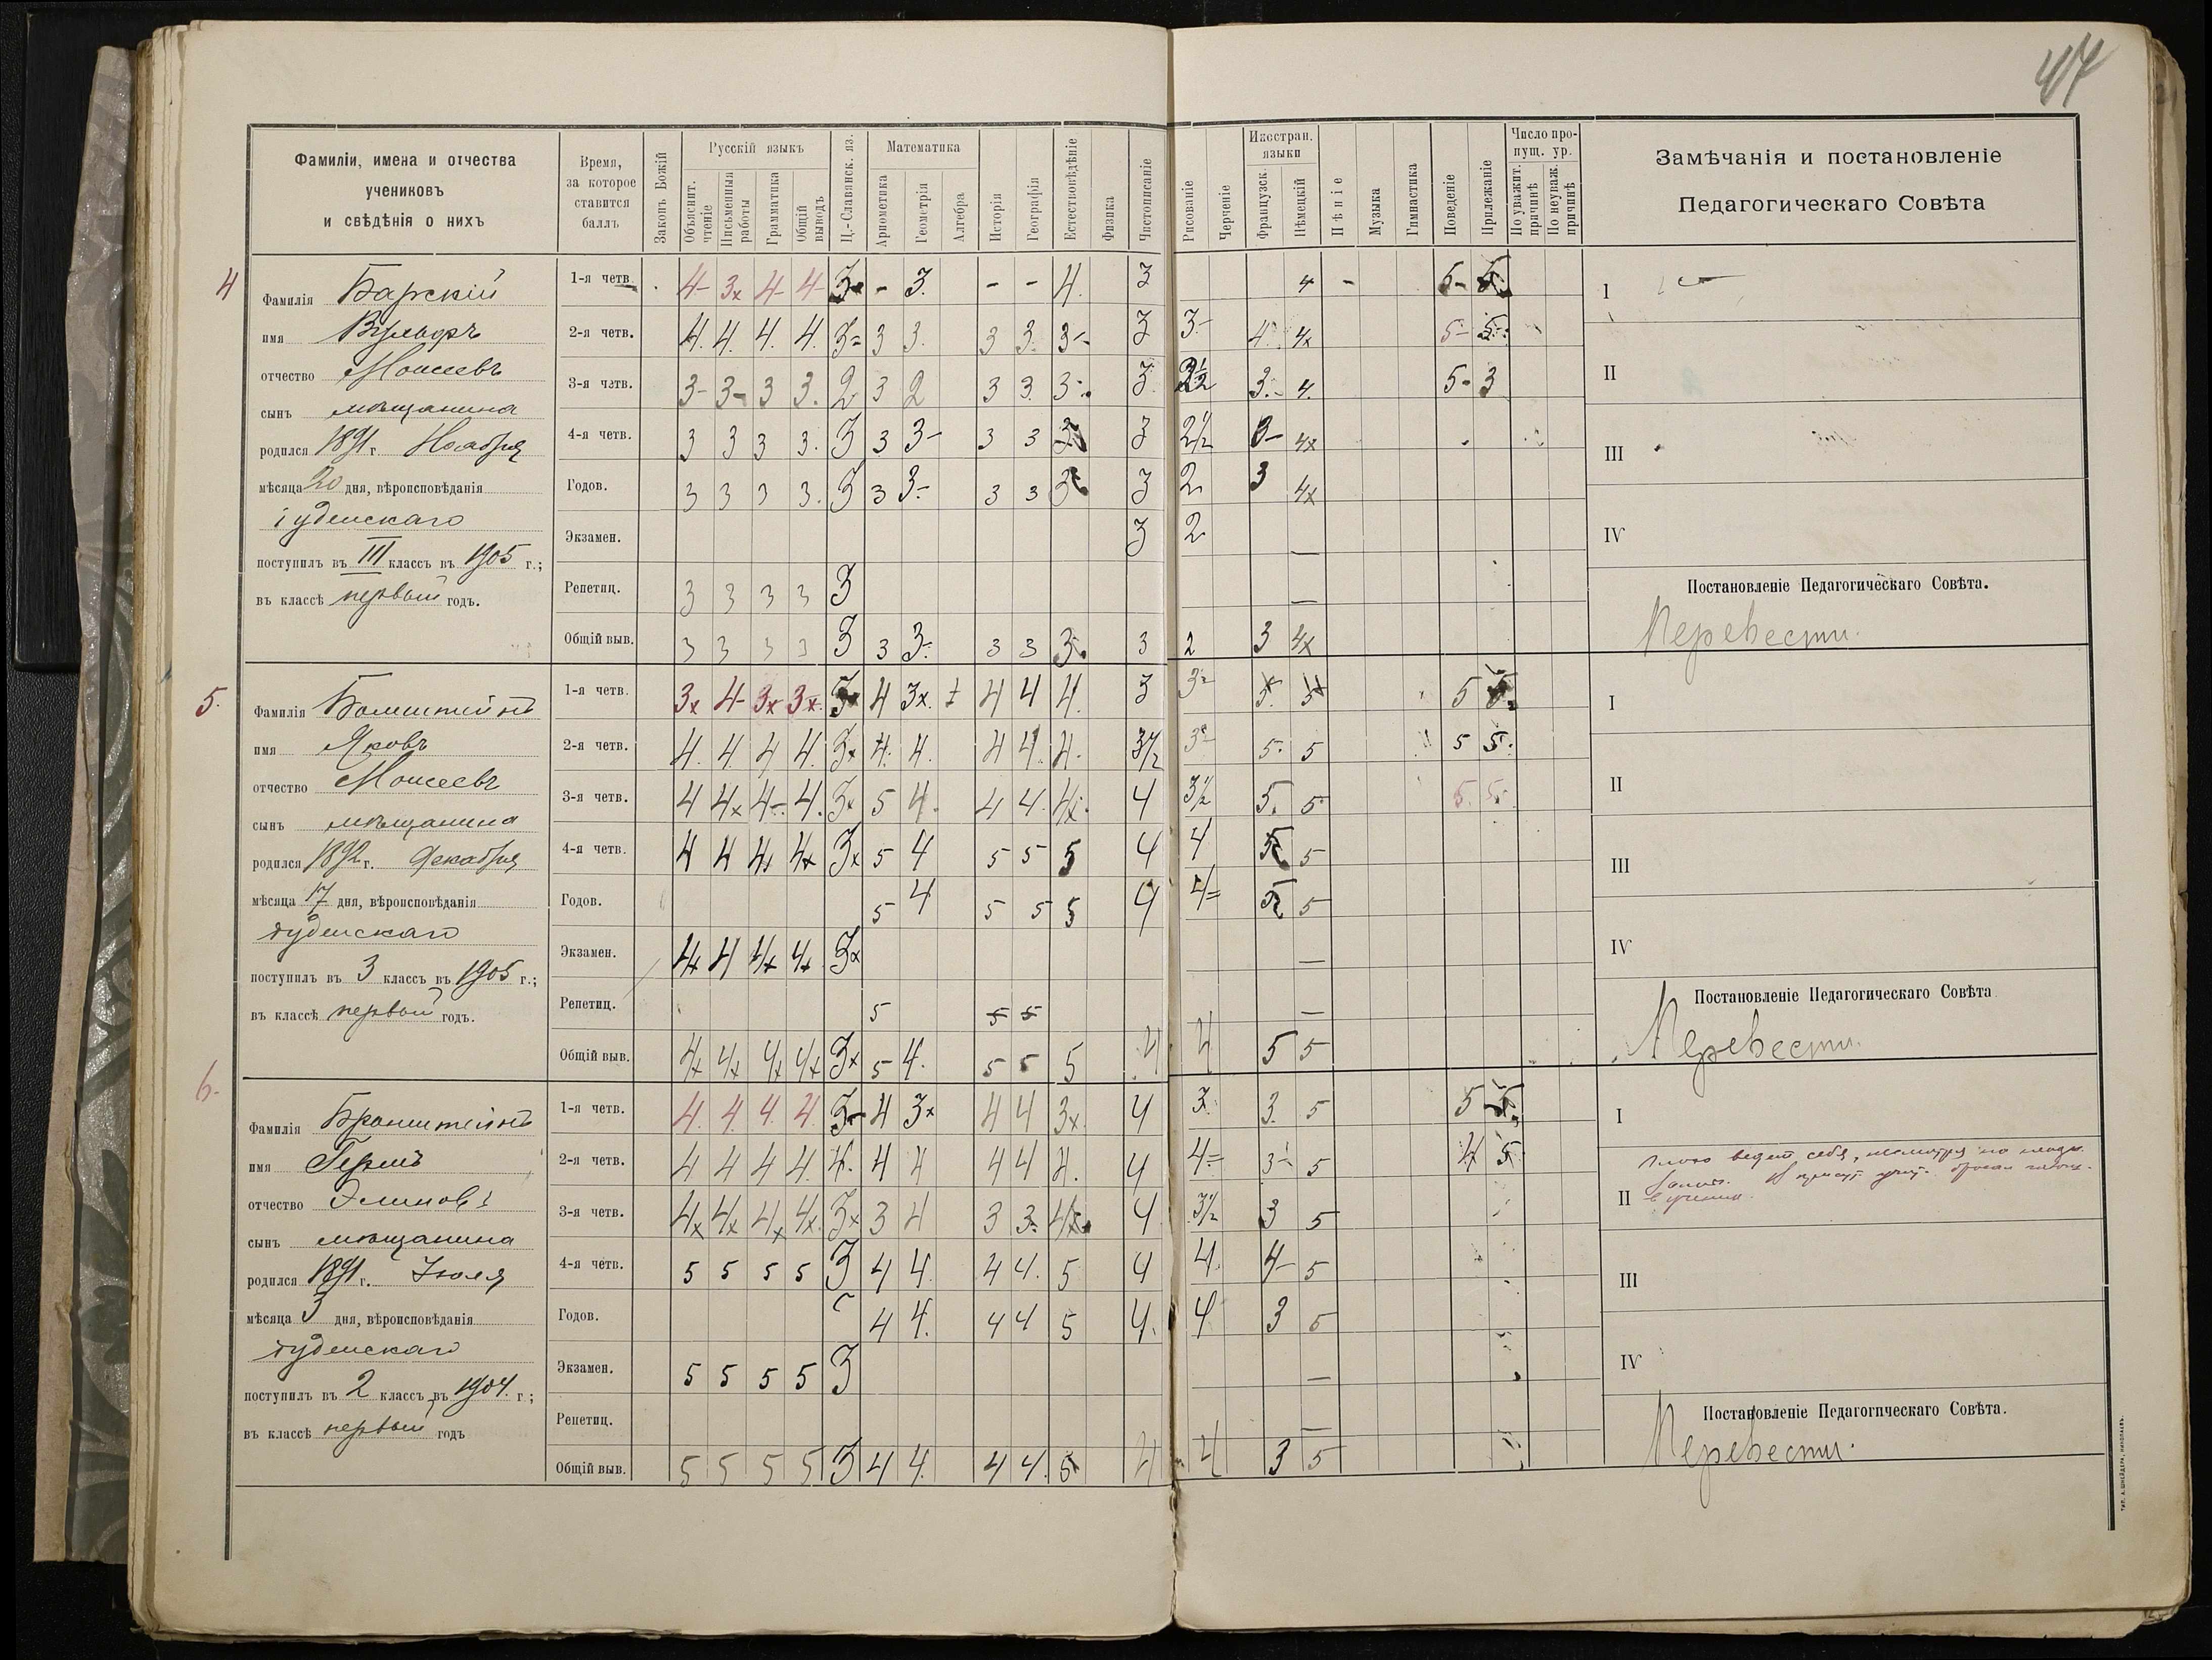 47
Фамиліи, имена и отчества
учениковъ
и свѣдѣнія о нихъ
Время,
за которое
ставится
баллъ
Законъ Божій
Русскій языкъ
Объяснит. чтеніе
Письменныя работы
Грамматика
Общій выводъ
Ц.-Славянск. яз.
Математика
Ариѳметика
Геометрія
Алгебра
Исторія
Географія
Естествовѣдѣніе
Физика
Чистописаніе
Рисованіе
Черченіе
Иностран.
языки
Французск.
Нѣмецкій
Пѣніе
Музыка
Гимнастика
Поведеніе
Прилежаніе
Число про-
пущ. ур.
По уважит. причинѣ
По неуваж. причинѣ
Замѣчанія и постановленіе
Педагогическаго Совѣта
4
Фамилія Барскій
имя Вульфъ
отчество Моисеевъ
сынъ мѣщанина
родился 1891 г. Ноября
мѣсяца 20 дня, вѣроисповѣданія
іудейскаго
поступилъ въ III классъ въ 1905 г.;
въ классѣ первый годъ.
1-я четв. 4- 3x 4- 4- 3 - 3. - - 4. 3 4 - 5- 5
2-я четв. 4. 4. 4. 4. 3= 3 3. 3 3. 3- 3 3- 4. 4x 5- 5-
3-я четв. 3- 3- 3 3. 2 3 2 3 3. 3- 3. 2½ 3.- 4. 5- 3
4-я четв. 3 3 3 3. 3 3 3- 3 3 3 3 2½ 3- 4x
Годов. 3 3 3 3. 3 3 3- 3 3 3 3 2 3 4x
Экзамен. 3 2 —
Репетиц. 3 3 3 3 3 —
Общій выв. 3 3 3 3 3 3 3- 3 3 3. 3 2 3 4x
I
II
III
IV
Постановленіе Педагогическаго Совѣта.
Перевести.
5.
Фамилія
имя Яковъ
отчество Моисеевъ
сынъ мѣщанина
родился 1892 г. Декабря
мѣсяца 17 дня, вѣроисповѣданія
іудейскаго
поступилъ въ 3 классъ въ 1905 г.;
въ классѣ первый годъ.
1-я четв. 3x 4- 3x 3x 3 4 3x. 4 4 4. 3 3- 5. 5 5 5
2-я четв. 4. 4. 4 4. 3x 4. 4. 4 4. 4. 3½ 3- 5. 5 5 5.
3-я четв. 4 4x 4- 4. 3x 5 4. 4 4. 4x. 4 3½ 5. 5 5. 5.
4-я четв. 4 4 4x 4x 3x 5 4 5 5 5 4 4 5 5
Годов. 5 4 5 5 5 4 4= 5 5
Экзамен. 4x 4 4x 4x 3x —
Репетиц. 5 5 5 —
Общій выв. 4x 4x 4x 4x 3x 5 4. 5 5 5 4 4 5 5
I
II
III
IV
Постановленіе Педагогическаго Совѣта
Перевести.
6.
Фамилія Бронштейнъ
имя Гершъ
отчество
сынъ мѣщанина
родился 1891 г. Іюля
мѣсяца 3 дня, вѣроисповѣданія
іудейскаго
поступилъ въ 2 классъ въ 1904. г;
въ классѣ первый годъ
1-я четв. 4. 4. 4. 4. 3- 4 3x 4 4 3x. 4 3. 3. 5 5 5
2-я четв. 4 4 4 4. 4. 4 4 4 4 4. 4 4= 3- 5 4 5
3-я четв. 4x 4x 4x 4x. 3x 3 4 3 3. 4x 4 3½ 3 5
4-я четв. 5 5 5 5 3 4 4. 4 4. 5 4 4. 4- 5
Годов. 4 4. 4 4 5 4. 4 3 5
Экзамен. 5 5 5 5 3 —
Репетиц. —
Общій выв. 5 5 5 5 3 4 4. 4 4. 5 4 4 3 5
I
II
Плохо ведет себя, несмотря на
III
IV
Постановленіе Педагогическаго Совѣта.
Перевести.
тип. А. Шнейдера, Николаевъ.